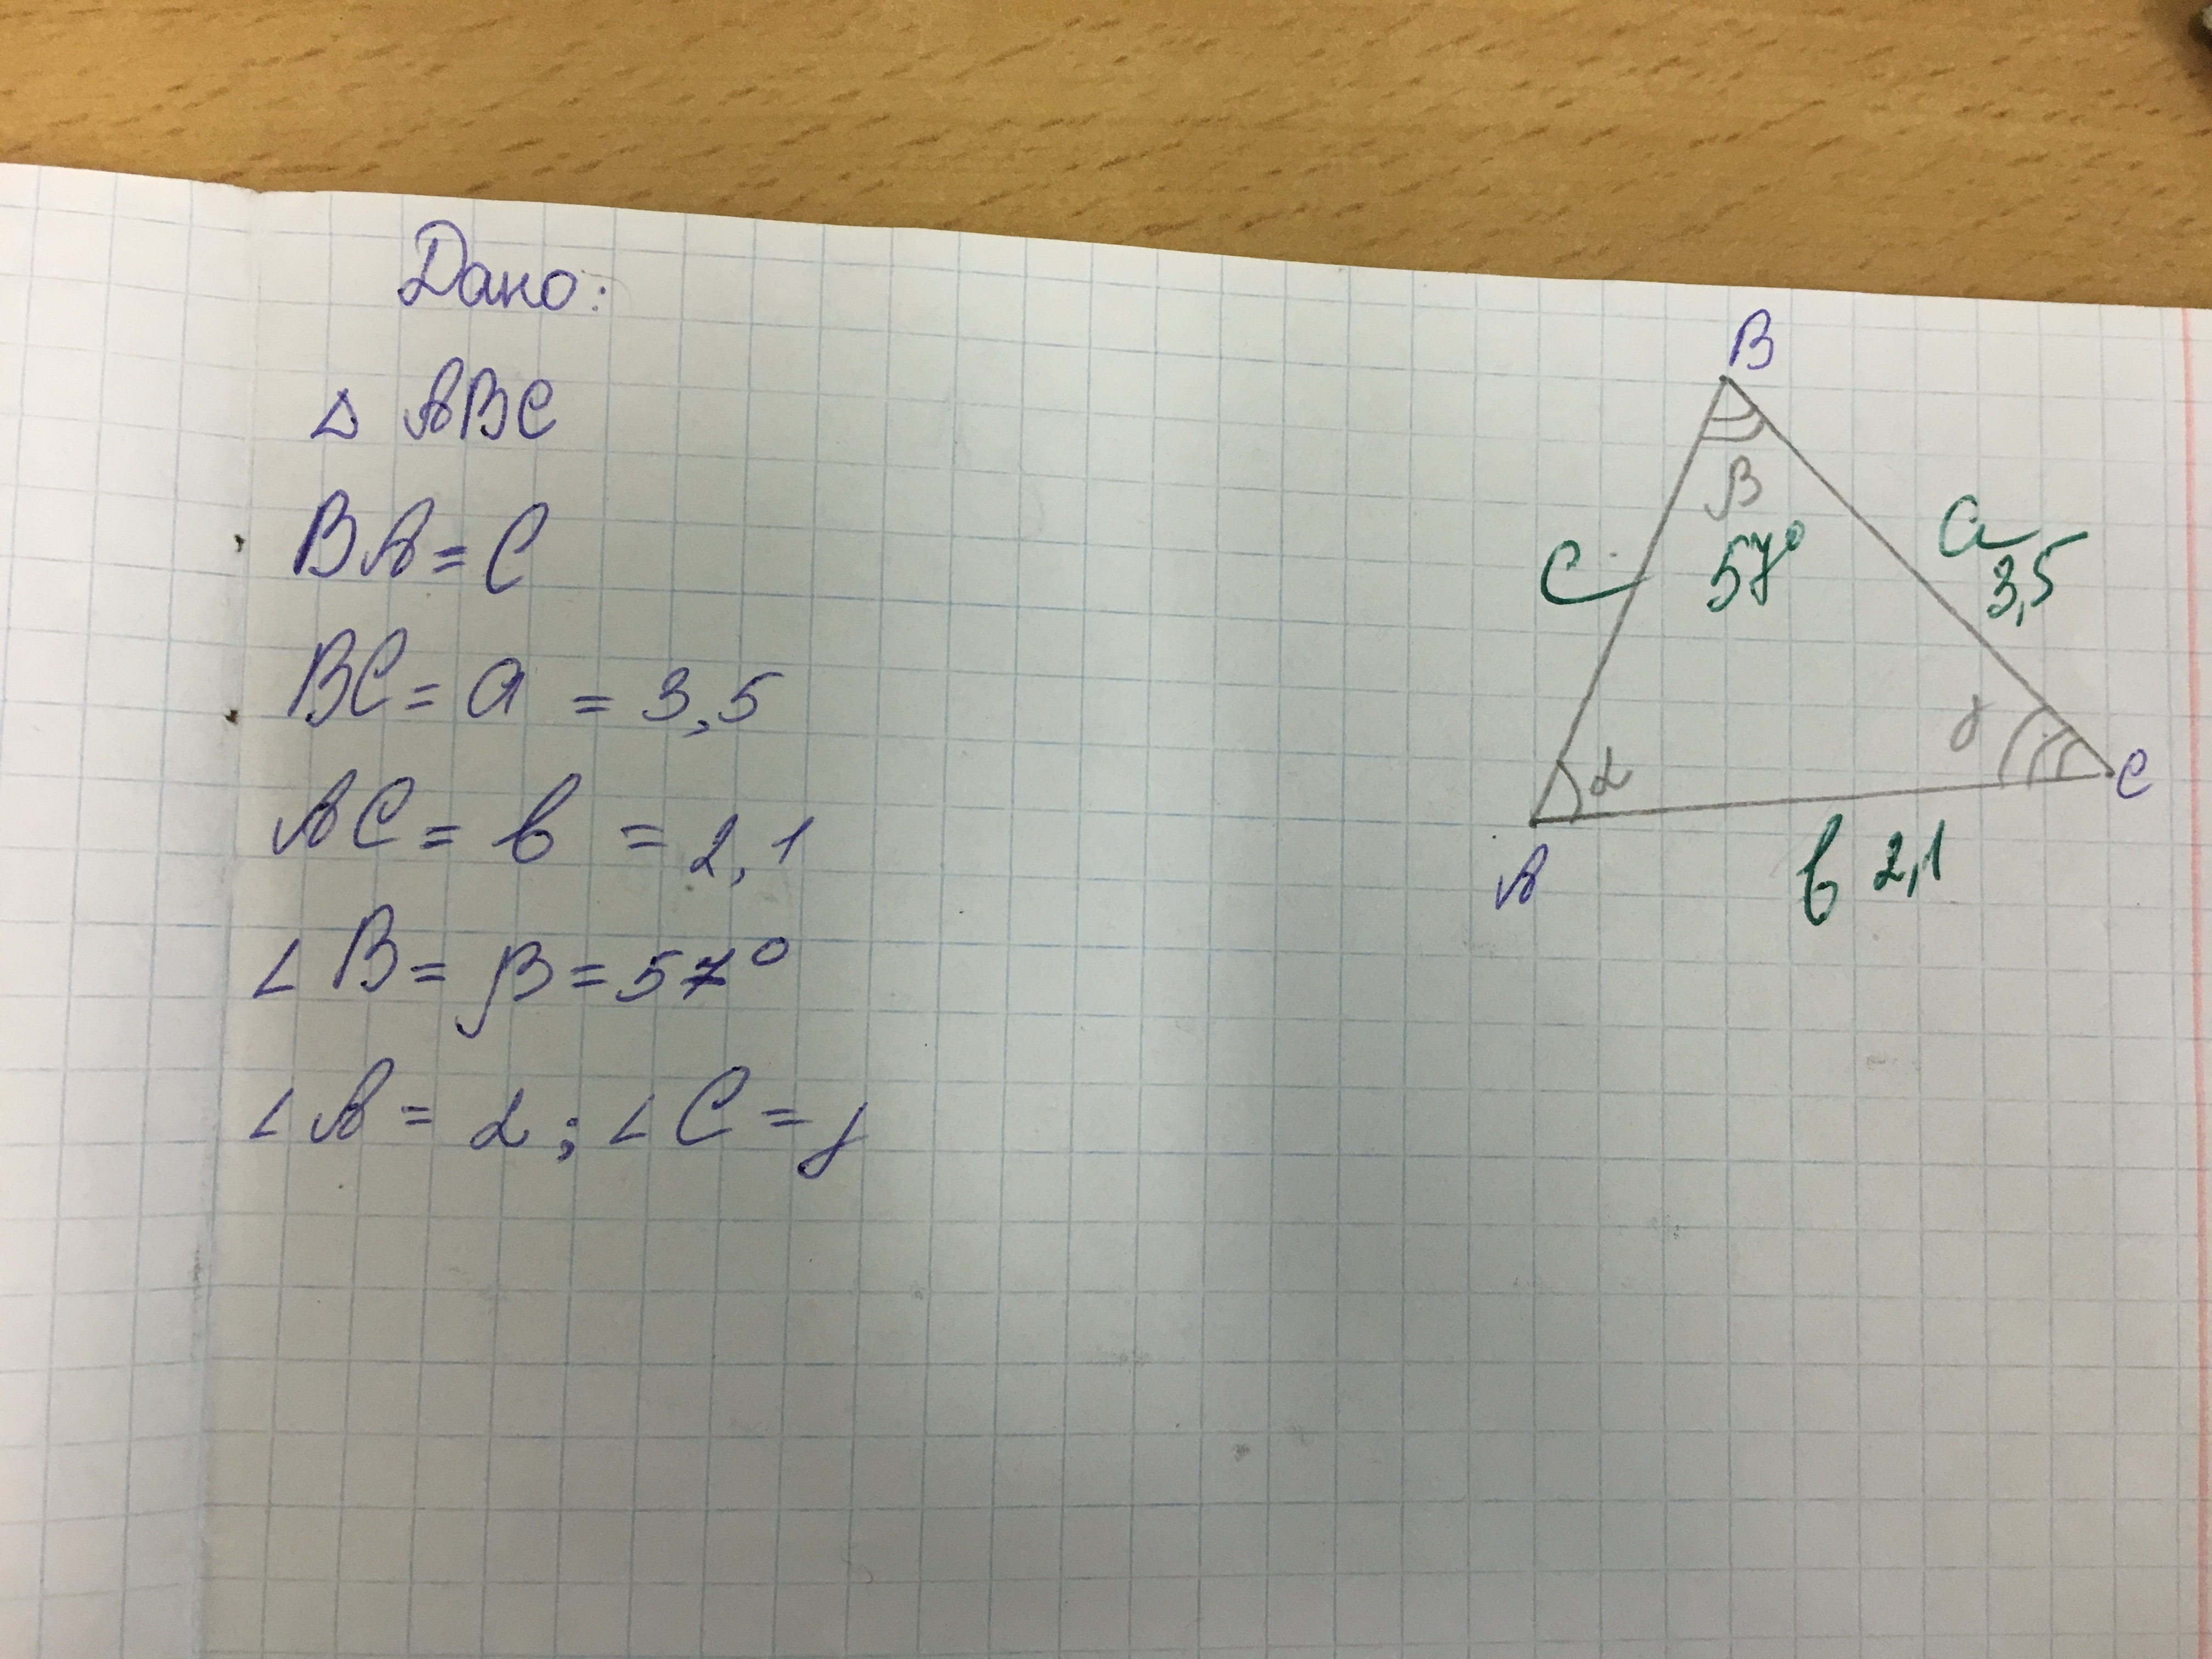 Дано:
Δ ABC
BA = C
BC = a = 3,5
AC = b = 2,1
∠ B = β = 57°
∠ A = α ; ∠ C = γ
B
β
57°
C
a
3,5
γ
α
C
A
b 2,1